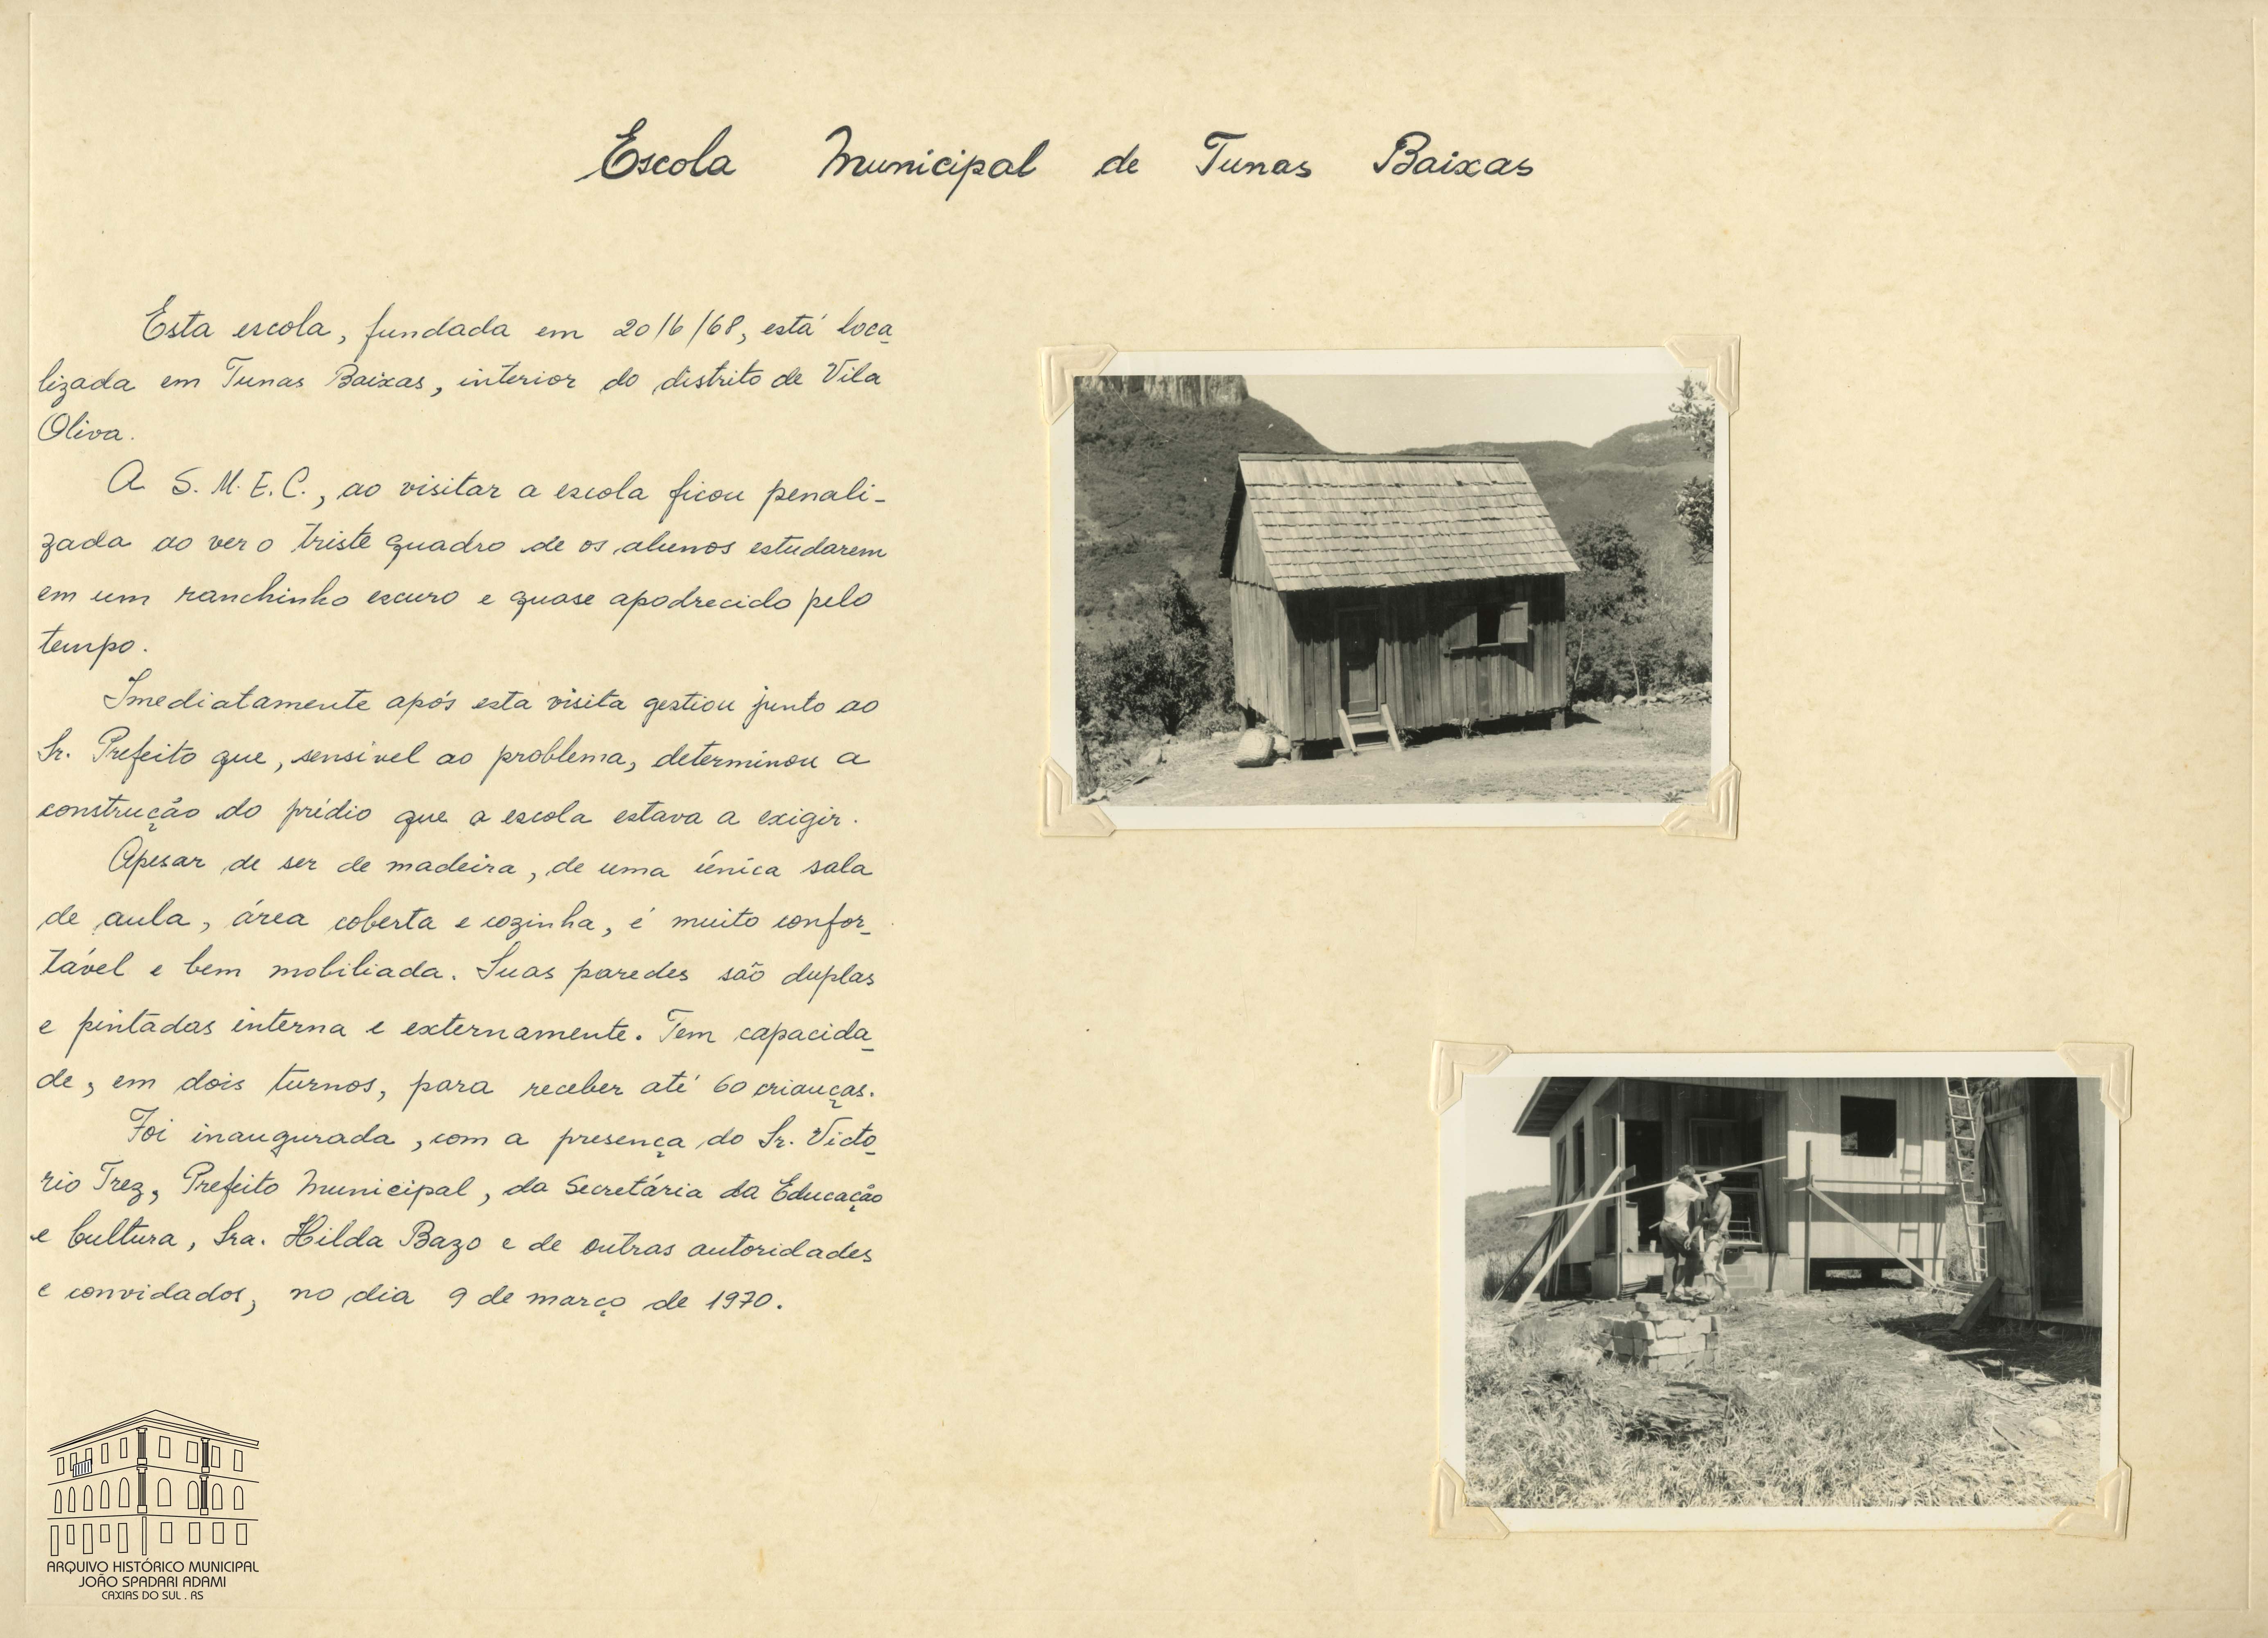 Escola Municipal de Tunas Baixas
Esta escola, fundada em 20/6/68, está loca-
lizada em Tunas Baixas, interior do distrito de Vila
Oliva.
A S. M. E. C., ao visitar a escola ficou penali-
zada ao ver o triste quadro de os alunos estudarem
em um ranchinho escuro e quase apodrecido pelo
tempo.
Imediatamente após esta visita gestiou junto ao
Sr. Prefeito que, sensivel ao problema, determinou a
construção do prédio que a escola estava a exigir.
Apesar de ser de madeira, de uma única sala
de aula, área coberta e cozinha, é muito confor-
tável e bem mobiliada. Suas paredes são duplas
e pintadas interna e externamente. Tem capacida-
de, em dois turnos, para receber até 60 crianças.
Foi inaugurada, com a presença do Sr. Victo-
rio Trez, Prefeito Municipal, da Secretária da Educação
e Cultura, Sra. Hilda Bazo e de outras autoridades
e convidados, no dia 9 de março de 1970.
ARQUIVO HISTÓRICO MUNICIPAL
JOÃO SPADARI ADAMI
CAXIAS DO SUL . RS